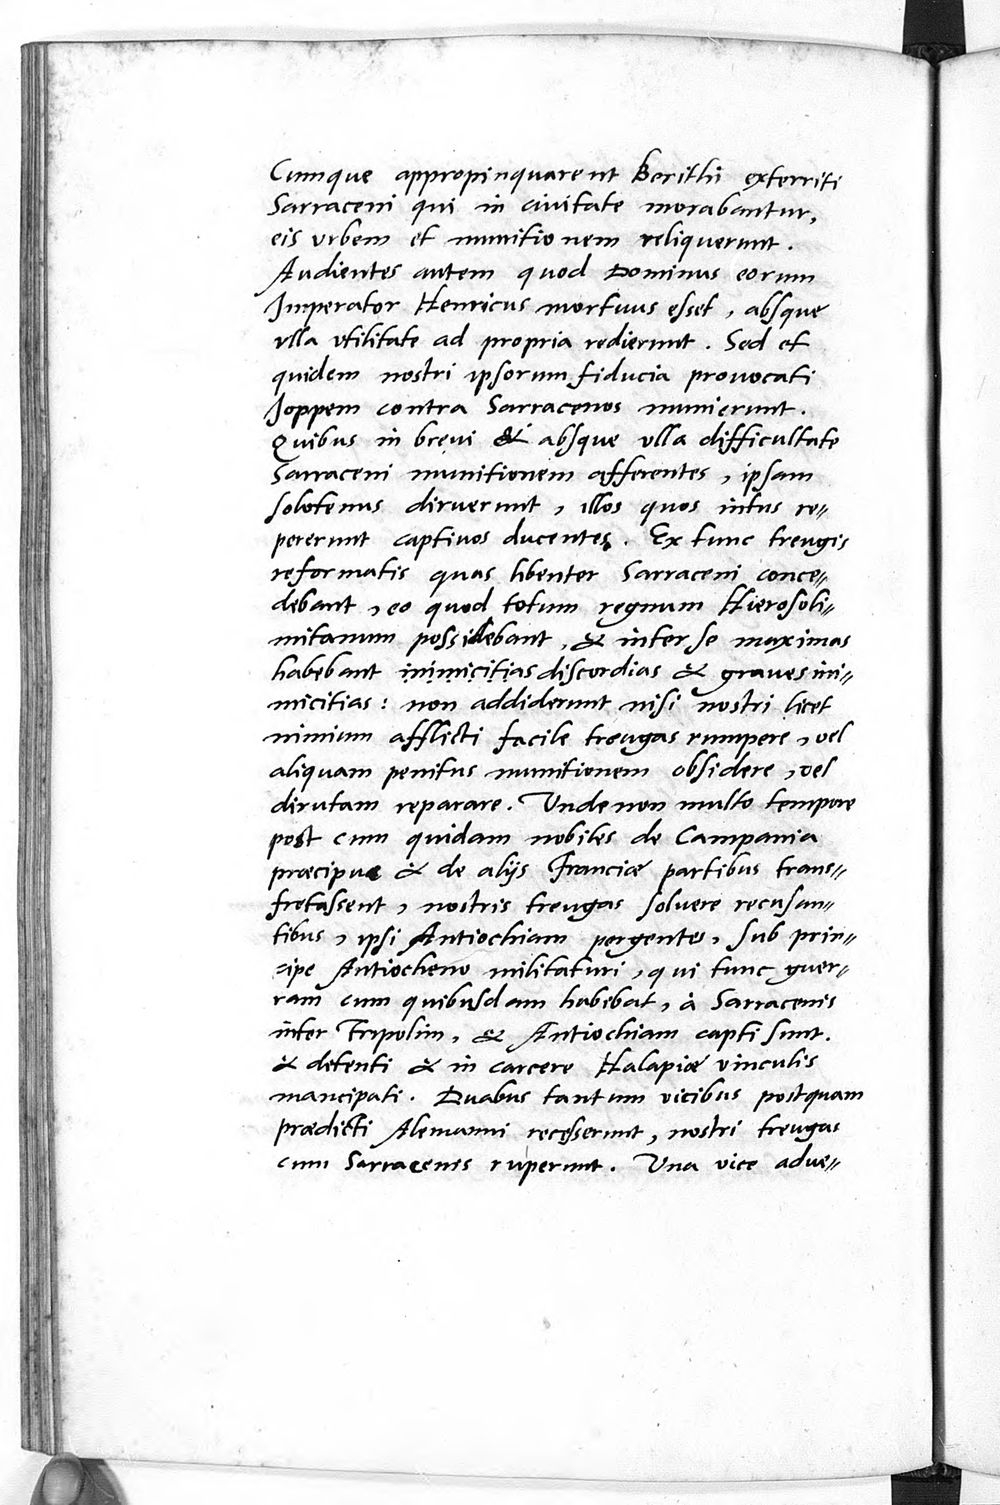 Cumque appropinquarent Berithi exterriti
Sarraceni qui in ciuitate morabantur,
eis vrbem et munitionem reliquerunt.
Audientes autem quod Dominus eorum
Imperator Henricus mortuus esset, absque
vlla vtilitate ad propria redierunt. Sed et
quidem nostri ipsorum fiducia prouocati
Joppem contra Sarracenos munierunt.
Quibus in breui & absque vlla difficultate
Sarraceni munitionem afferentes, ipsam
solotenus diruerunt, illos quos intus re//
pererunt captiuos ducentes. Ex tunc treugis
reformatis quas libenter Sarraceni conce//
debant, eo quod totum regnum Hierosoli//
mitanum possidebant, & inter se maximas
habebant inimicitias discordias & graues ini//
micitias: non addiderunt nisi nostri licet
nimium afflicti facile treugas rumpere, vel
aliquam penitus munitionem obsidere, vel
dirutam reparare. Unde non multo tempore
post cum quidam nobiles de Campania
præcipue & de alijs Franciæ partibus trans//
fretassent, nostris treugas soluere recusan//
tibus, ipsi Antiochiam pergentes, sub prin//
cipe Antiocheno militaturi, qui tunc guer//
ram cum quibusdam habebat, à Sarracenis
inter Tripolim, & Antiochiam capti sunt.
& detenti & in carcere Halapiæ vinculis
mancipati. Duabus tantum vicibus postquam
prædicti Alemanni recesserunt, nostri treugas
cum Sarracenis ruperunt. Una vice adue//